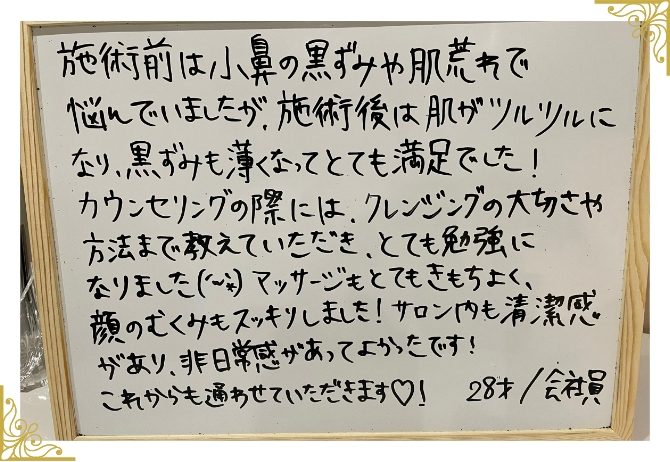 施術前は小鼻の黒ずみや肌荒れで
悩んでいましたが、施術後は肌がツルツルに
なり、黒ずみも薄くなってとても満足でした！
カウンセリングの際には、クレンジングの大切さや
方法まで教えていただき、とても勉強に
なりました(^~^*) マッサージもとてもきもちよく、
顔のむくみもスッキリしました！サロン内も清潔感
があり、非日常感があってよかったです！
これからも通わせていただきます♡！ 28才/会社員